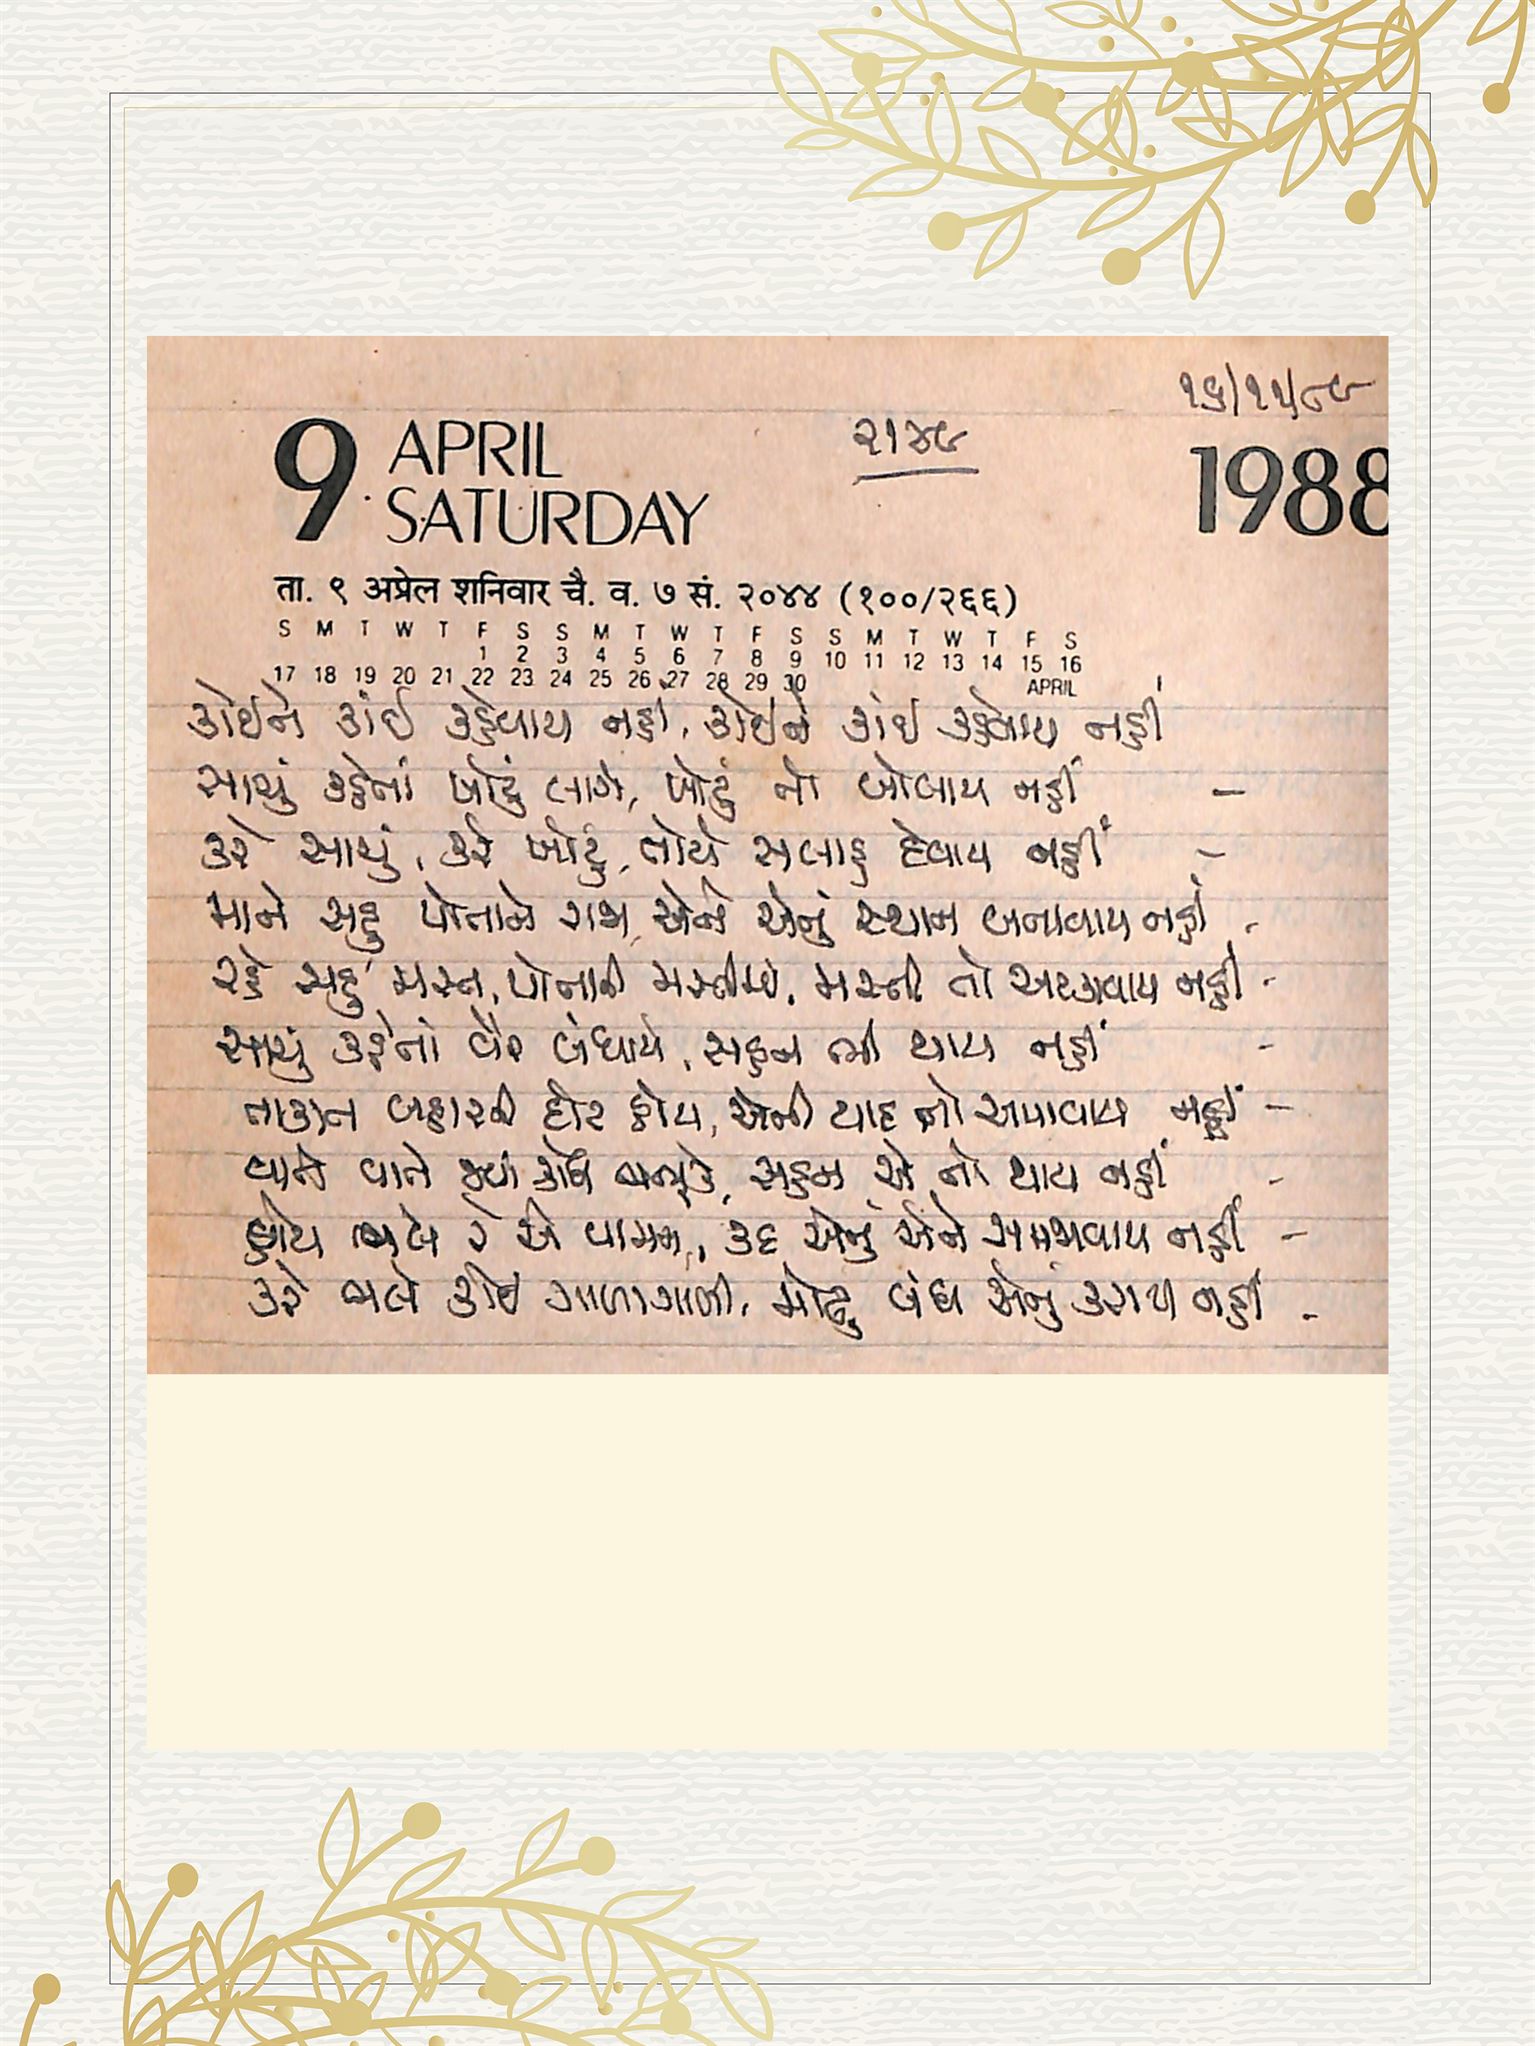 ૧૬/૧૧/૮૯
9 APRIL
૨૧૪૯
SATURDAY
1988
ता. ९ अप्रेल शनिवार चै. व. ७ सं. २०४४ (१००/२६६)
S M T W T F S S M T W T F S S M T W T F S
1 2 3 4 5 6 7 8 9 10 11 12 13 14 15 16
17 18 19 20 21 22 23 24 25 26 27 28 29 30
APRIL
કોઈને કાંઈ કહેવાય નહીં, કોઈને કાંઈ કહેવાય નહીં
સાચું કહેતાં ખોટું લાગે, ખોટું તો બોલાય નહીં –
કરે સાચું, કરે ખોટું, તોયે સલાહ દેવાય નહીં –
માને સહુ પોતાને રાજા, એને એનું સ્થાન બતાવાય નહીં -
રહે સહુ મસ્ત, પોતાની મસ્તીમાં, મસ્તી તો અટકાવાય નહીં -
સાચું કહેતાં વૈર બંધાયે, સહન ભી થાય નહીં -
તાકાત બહારની દોટ હોય, એની યાદ તો અપાવાય નહીં –
વાતે વાતે જ્યાં કોઈ બગડે, સહન એ તો થાય નહીં -
હોય ભલે રે એ વામન, કદ એનું એને સમજાવાય નહીં –
કરે ભલે કોઈ ગાળાગાળી, મોઢું બંધ એનું કરાય નહીં -